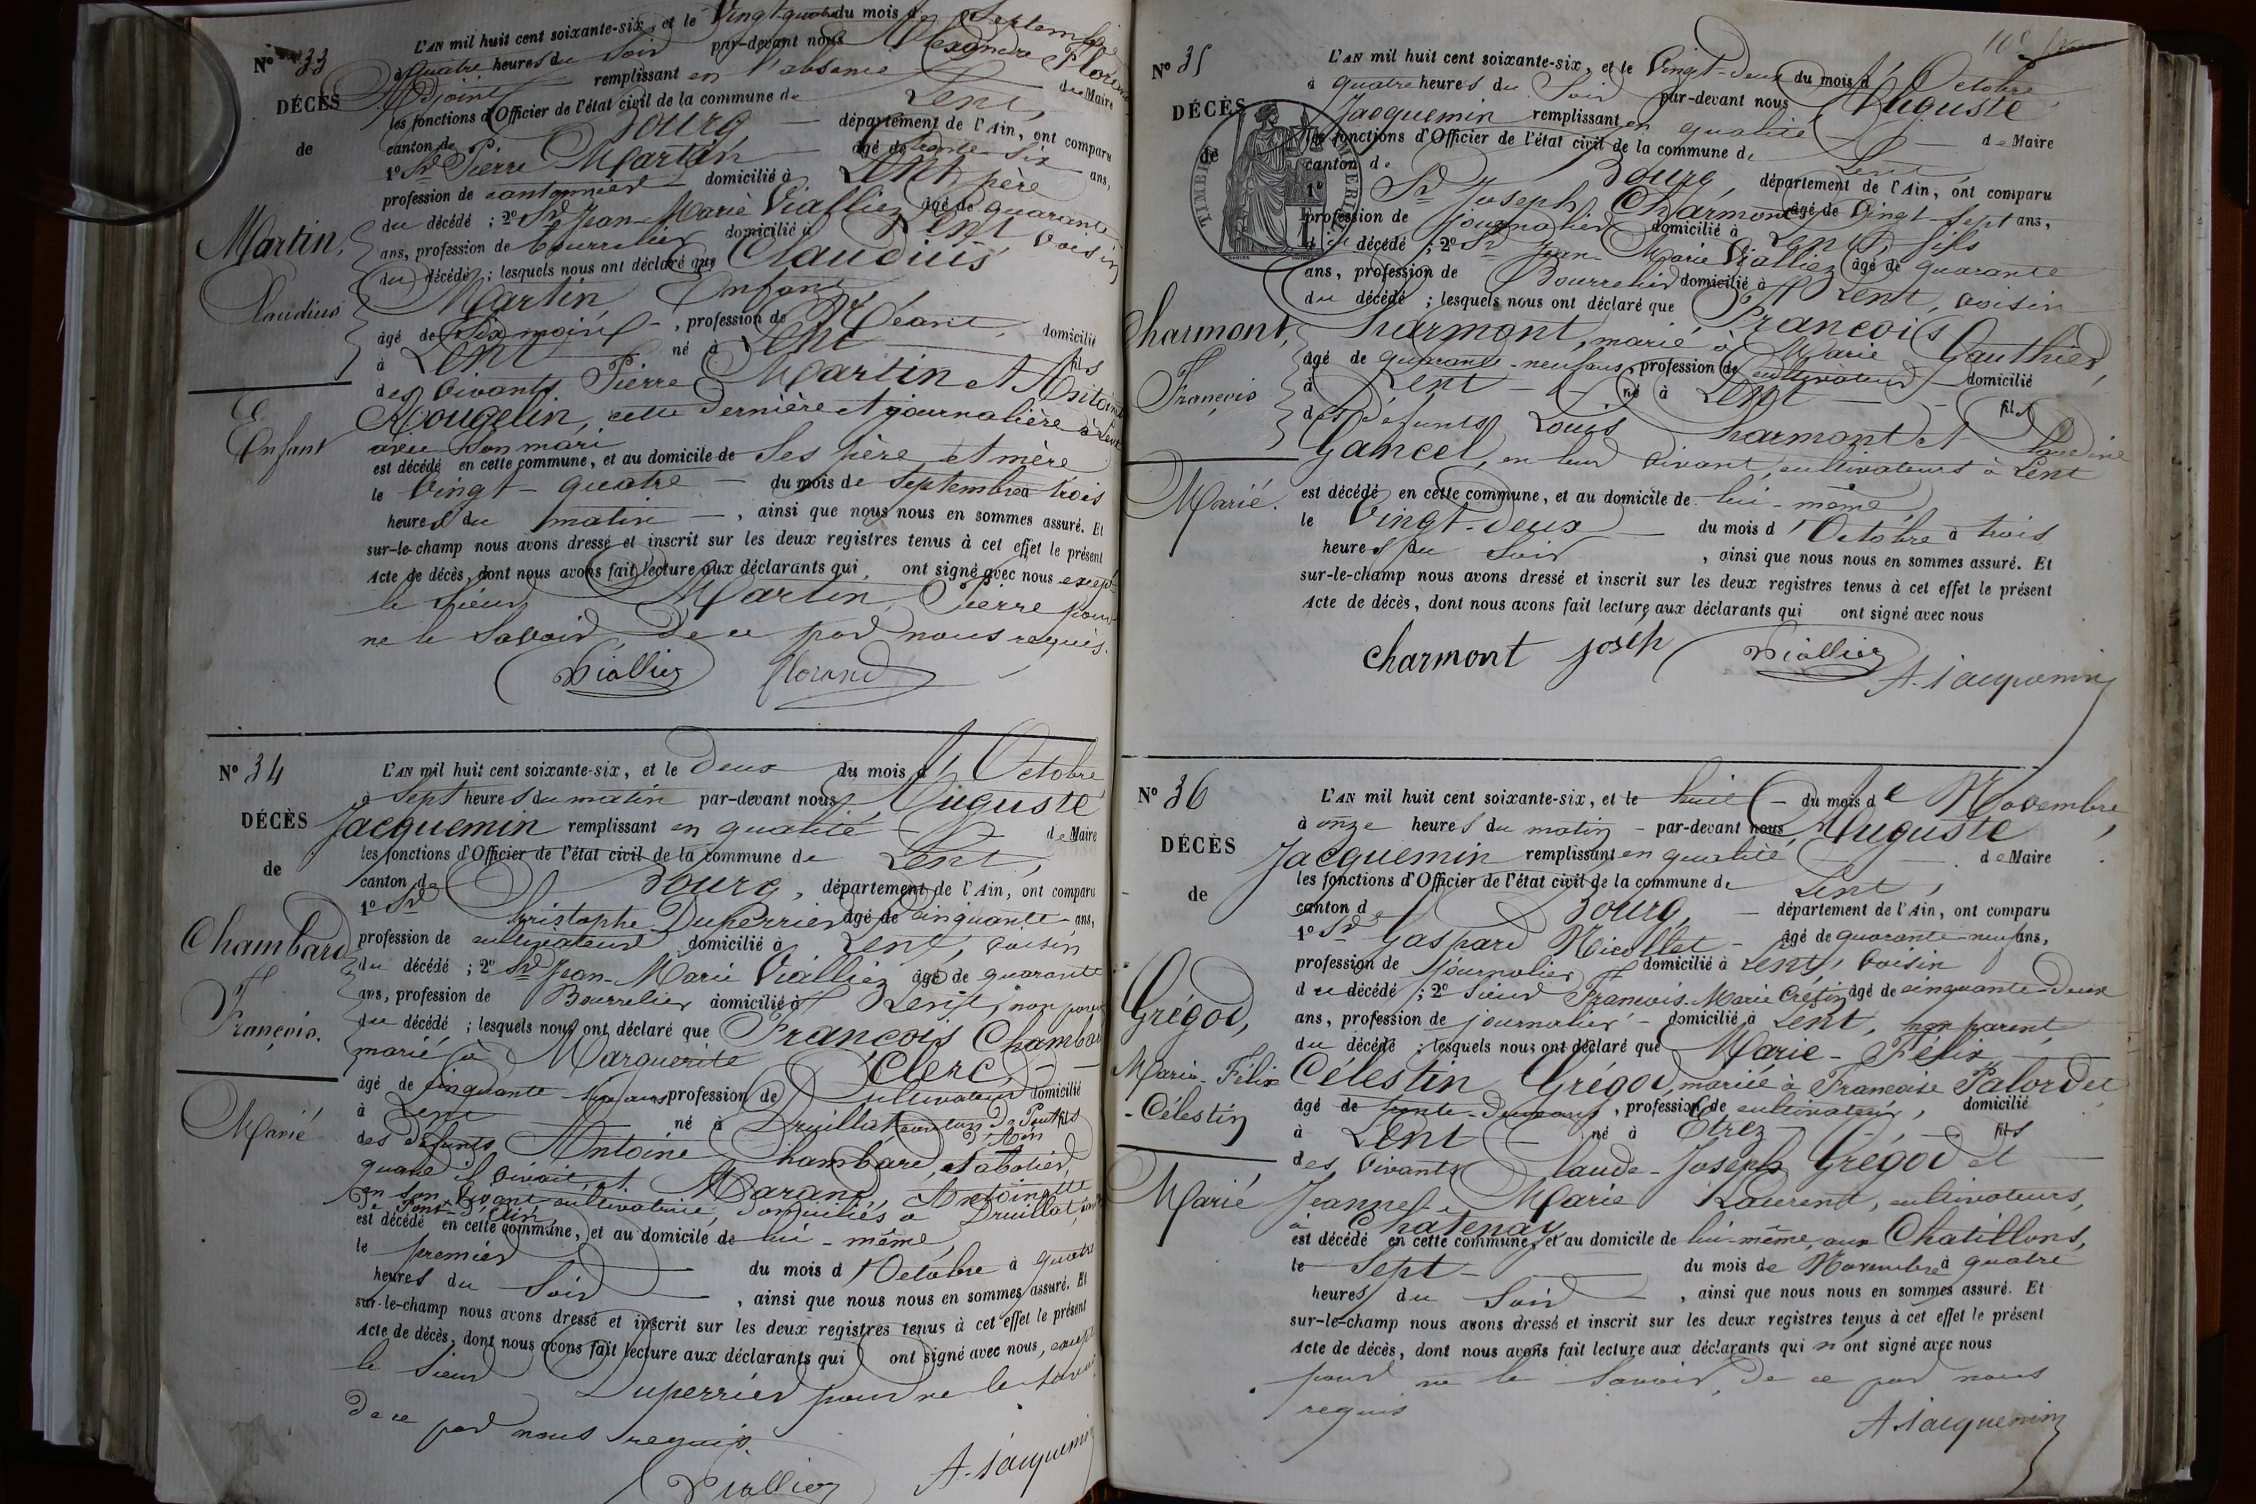 N° 33
DÉCÈS
de
Martin,
Claudius
Enfant
L'AN mil huit cent soixante-six, et le Vingt-quatre du mois de Septembre
à quatre heures du Soir par-devant nous Alexandre Florand
Adjoint remplissant en l'absence du Maire
les fonctions d'Officier de l'état civil de la commune de Lent,
canton de Bourg — département de l'Ain, ont comparu
1° Sr Pierre Martin — âgé de trente-six ans,
profession de cantonnier domicilié à Lent, père
du décédé ; 2° Sr Jean-Marie Viallier âgé de quarante
ans, profession de bourrelier domicilié à Lent, voisin
du décédé ; lesquels nous ont déclaré que Claudius
Martin, Enfant
âgé de Six mois —, profession de Néant, domicilié
à Lent né à Lent — fils
des vivants Pierre Martin et
Rougelin, cette dernière journalière à Lent
avec son mari
est décédé en cette commune, et au domicile de Ses père et mère
le Vingt-quatre — du mois de Septembre à trois
heures du matin —, ainsi que nous nous en sommes assuré. Et
sur-le-champ nous avons dressé et inscrit sur les deux registres tenus à cet effet le présent
Acte de décès, dont nous avons fait lecture aux déclarants qui ont signé avec nous excepté
le Sieur Martin Pierre pour
ne le Savoir de ce par nous requis.
Viallier Florand
N° 34
DÉCÈS
de
Chambard
François.
Marié
L'AN mil huit cent soixante-six, et le deux du mois d'Octobre
à Sept heures du matin par-devant nous Auguste
Jacquemin remplissant en qualité de Maire
les fonctions d'Officier de l'état civil de la commune de Lent,
canton de Bourg, département de l'Ain, ont comparu
1° Sr Christophe Duperrier âgé de cinquante ans,
profession de cultivateur domicilié à Lent, voisin
du décédé ; 2° Sr Jean-Marie Viallier âgé de quarante
ans, profession de Bourrelier domicilié à Lent, non parent
du décédé ; lesquels nous ont déclaré que François Chambard
marié à Marguerite Clerc,
âgé de cinquante ans profession de Cultivateur domicilié
à Lent né à Druillat canton de Pont d'Ain fils
des défunts Antoine Chambard, Sabotier,
quand il vivait, et Marand Antoinette
en son vivant cultivatrice, domiciliés à Druillat,
de Pont-d'Ain,
est décédé en cette commune, et au domicile de lui-même,
le premier du mois d'Octobre à quatre
heures du Soir —, ainsi que nous nous en sommes assuré. Et
sur-le-champ nous avons dressé et inscrit sur les deux registres tenus à cet effet le présent
Acte de décès, dont nous avons fait lecture aux déclarants qui ont signé avec nous, excepté
le Sieur Duperrier pour ne le savoir
de ce par nous requis.
Viallier A. Jacquemin
N° 35
DÉCÈS
de
Charmont,
François
Marié.
L'AN mil huit cent soixante-six, et le Vingt-deux du mois d'Octobre
à quatre heures du Soir par-devant nous Auguste
Jacquemin remplissant en qualité de Maire
les fonctions d'Officier de l'état civil de la commune de Lent
canton de Bourg département de l'Ain, ont comparu
1° Sr Joseph Charmont âgé de vingt-sept ans,
profession de journalier domicilié à Lent, fils
du décédé ; 2° Sr Jean-Marie Viallier âgé de quarante
ans, profession de Bourrelier domicilié à Lent, voisin
du décédé ; lesquels nous ont déclaré que François
Charmont, marié à Marie Gauthier,
âgé de quarante-neuf ans, profession de cultivateur domicilié
à Lent né à Lent — fils
des Défunts Louis Charmont et Claudine
Gancel, en leur vivant, cultivateurs à Lent
est décédé en cette commune, et au domicile de lui-même,
le Vingt-deux — du mois d'Octobre à trois
heures du Soir, ainsi que nous nous en sommes assuré. Et
sur-le-champ nous avons dressé et inscrit sur les deux registres tenus à cet effet le présent
Acte de décès, dont nous avons fait lecture aux déclarants qui ont signé avec nous
charmont joseph Viallier
A. Jacquemin
N° 36
DÉCÈS
de
Grégod,
Marie-Félix
-Célestin
Marié
L'AN mil huit cent soixante-six, et le huit — du mois de Novembre,
à onze heures du matin — par-devant nous Auguste
Jacquemin remplissant en qualité de Maire
les fonctions d'Officier de l'état civil de la commune de Lent,
canton de Bourg, — département de l'Ain, ont comparu
1° Sr Gaspard Nicollet — âgé de quarante-neuf ans,
profession de journalier domicilié à Lent, voisin
du décédé ; 2° Sieur François-Marie Crétin âgé de cinquante-deux
ans, profession de journalier — domicilié à Lent, non parent
du décédé ; lesquels nous ont déclaré que Marie-Félix
Célestin Grégod, marié à Françoise Palordet
âgé de trente-deux ans, profession de cultivateur, domicilié
à Lent — né à Etrez — fils
des vivants Claude-Joseph Grégod et
Jeanne Marie Laurent, cultivateurs,
à Chatenay
est décédé en cette commune, et au domicile de lui-même, aux Chatillons,
le Sept — du mois de Novembre à quatre
heures du Soir —, ainsi que nous nous en sommes assuré. Et
sur-le-champ nous avons dressé et inscrit sur les deux registres tenus à cet effet le présent
Acte de décès, dont nous avons fait lecture aux déclarants qui n'ont signé avec nous
pour ne le Savoir, de ce par nous
requis
A. Jacquemin